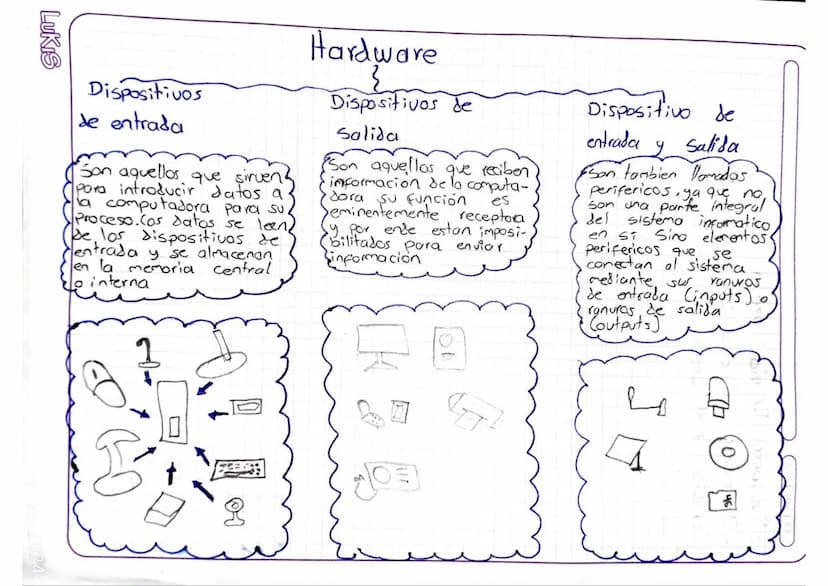 LUKIS
Hardware
Dispositivos
de entrada
Son aquellos que sirven
para introducir datos a
la computadora para su
proceso. Los datos se leen
de los dispositivos de
entrada y se almacenan
en la memoria central
o interna
Dispositivos de
Salida
Son aquellos que reciben
informacion de la computa-
dora su función es
eminentemente receptora
y por ende estan imposi-
bilitados para enviar
información
Dispositivo de
entrada y salida
Son tambien llamados
perifericos, ya que no
son una parte integral
del sistema informatico
en si sino elementos
perifericos que se
conectan al sistema
mediante sus ranuras
de entrada (inputs) o
ranuras de salida
(outputs)